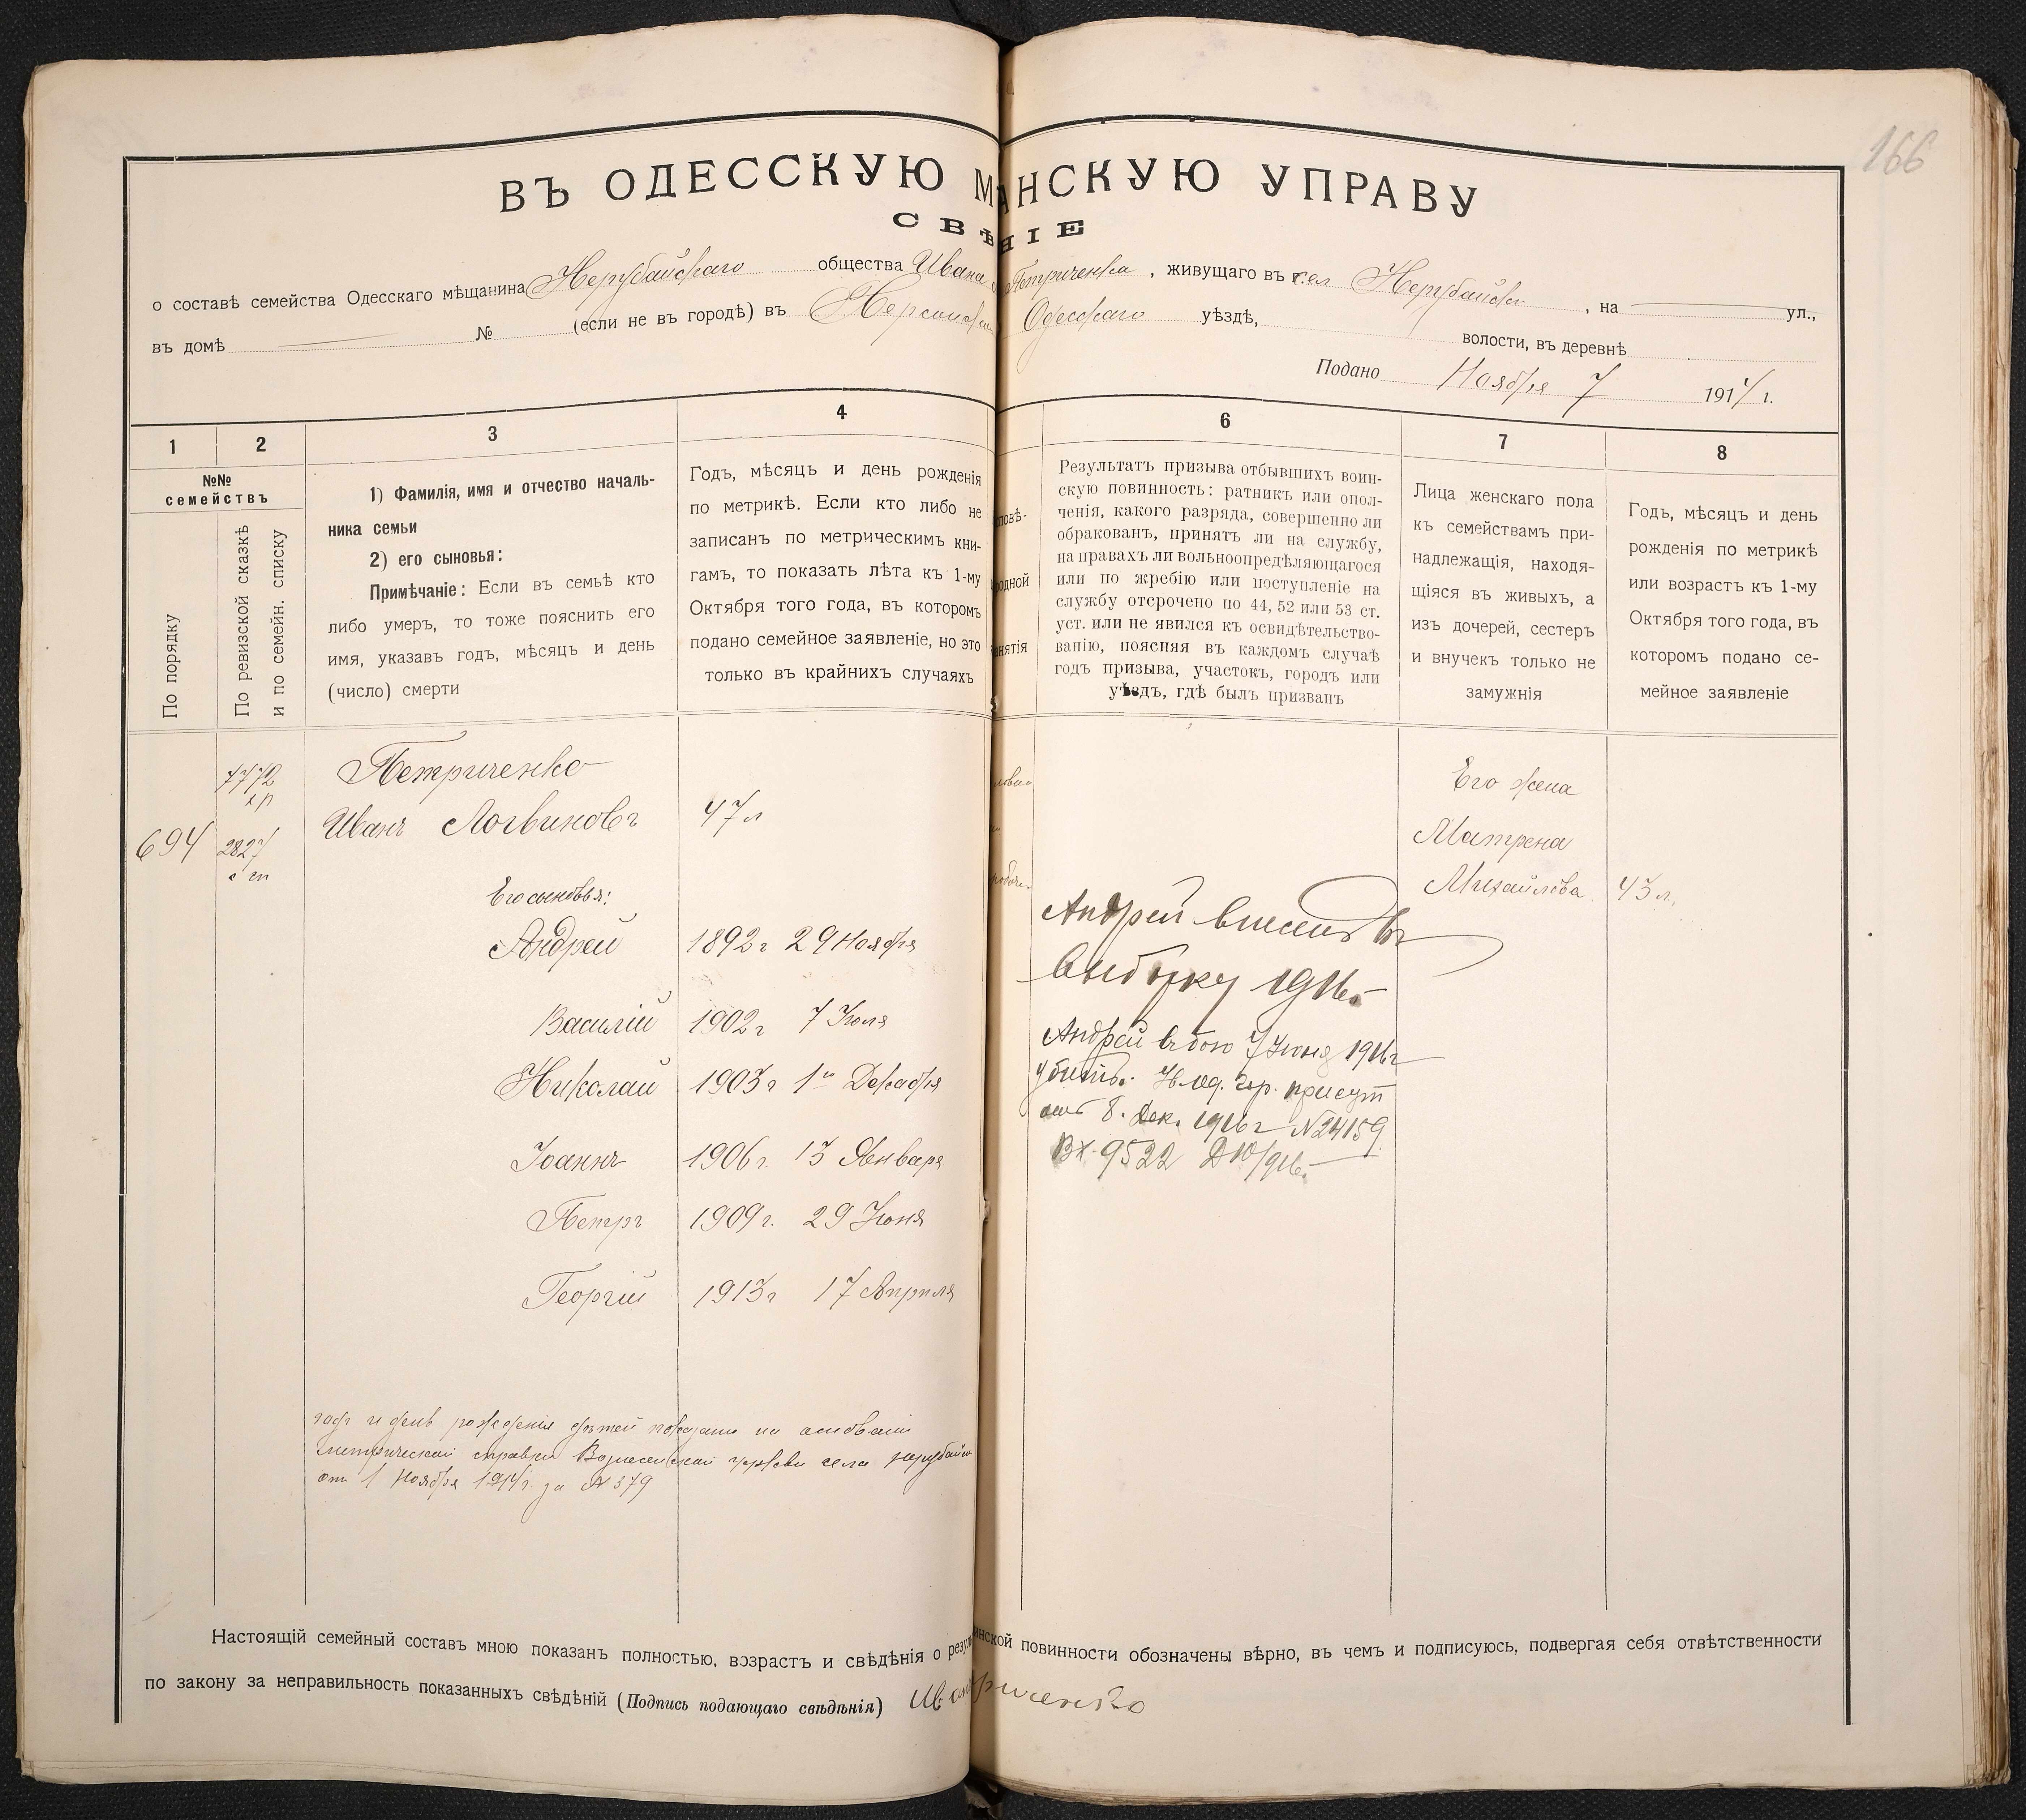 166
ВЪ ОДЕССКУЮ М АНСКУЮ УПРАВУ
СВѢ НІЕ
о составѣ семейства Одесскаго мѣщанина Нерубайскаго общества Ивана Петриченка, живущаго въ сел Нерубайск , на ул.,
въ домѣ № (если не въ городѣ) въ Херсонско Одесскаго уѣздѣ, волости, въ деревнѣ
Подано Ноября 7 1914 г.
1 2 3 4 6 7 8
№№ семействъ
По порядку
По ревизской сказкѣ
и по семейн. списку
1) Фамилія, имя и отчество началь-
ника семьи
2) его сыновья:
Примѣчаніе: Если въ семьѣ кто
либо умеръ, то тоже пояснить его
имя, указавъ годъ, мѣсяцъ и день
(число) смерти
Годъ, мѣсяцъ и день рожденія
по метрикѣ. Если кто либо не
записанъ по метрическимъ кни-
гамъ, то показать лѣта къ 1-му
Октября того года, въ которомъ
подано семейное заявленіе, но это
только въ крайнихъ случаяхъ
повѣ-
родной
нятія
Результатъ призыва отбывшихъ воин-
скую повинность: ратникъ или опол-
ченія, какого разряда, совершенно ли
обракованъ, принятъ ли на службу,
на правахъ ли вольноопредѣляющагося
или по жребію или поступленіе на
службу отсрочено по 44, 52 или 53 ст.
уст. или не явился къ освидѣтельство-
ванію, поясняя въ каждомъ случаѣ
годъ призыва, участокъ, городъ или
уѣздъ, гдѣ былъ призванъ
Лица женскаго пола
къ семействамъ при-
надлежащія, находя-
щіяся въ живыхъ, а
изъ дочерей, сестеръ
и внучекъ только не
замужнія
Годъ, мѣсяцъ и день
рожденія по метрикѣ
или возрастъ къ 1-му
Октября того года, въ
которомъ подано се-
мейное заявленіе
7772
694 2827
Петриченко
Иванъ Логвиновъ 47 л
Его сыновья:
Андрей 1892 г 29 Ноября
Василій 1902 г 7 Іюля
Николай 1903 г 1го Декабря
Іоаннъ 1906 г. 13 Января
Петръ 1909 г. 29 Іюня
Георгій 1913 г 17 Апреля
Андрей внесенъ въ
выборку 1916.
Андрей въ бою 7 Іюня 1916 г
убитъ. присут
8. Дек. 1916 г №24159
Вх. 9522
Его жена
Матрена
Михайлова 43 л.
годъ и день рожденія дѣтей показаны на основаніи
метрической справки Вознесенской церкви села Нерубайск
отъ 1 Ноября 1914 г. за № 379
Настоящій семейный составъ мною показанъ полностью, возрастъ и свѣдѣнія о резул инской повинности обозначены вѣрно, въ чемъ и подписуюсь, подвергая себя отвѣтственности
по закону за неправильность показанныхъ свѣдѣній (Подпись подающаго свѣдѣнія) Иван риченко